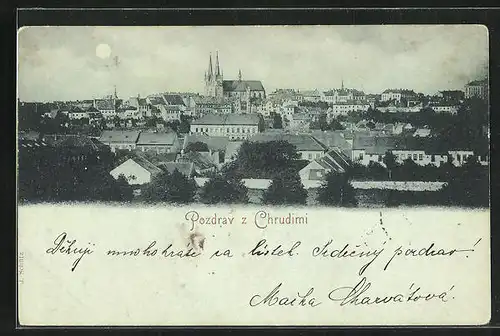 Pozdrav z Chrudimi
Děkuji mnohokráte za lístek. Srdečný pozdrav!
Mařka Charvátová.